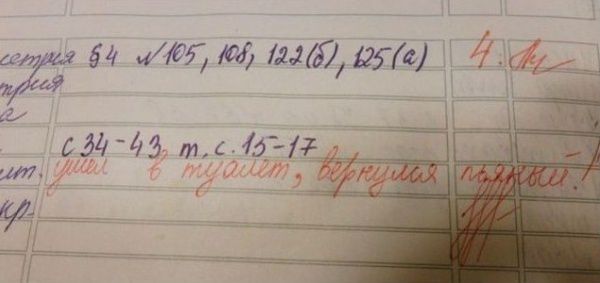 етрия §4 №105, 108, 122(б), 125(а) 4.
трия
а
с 34-43, т. с. 15-17
ушел в туалет, вернулся пьяный!